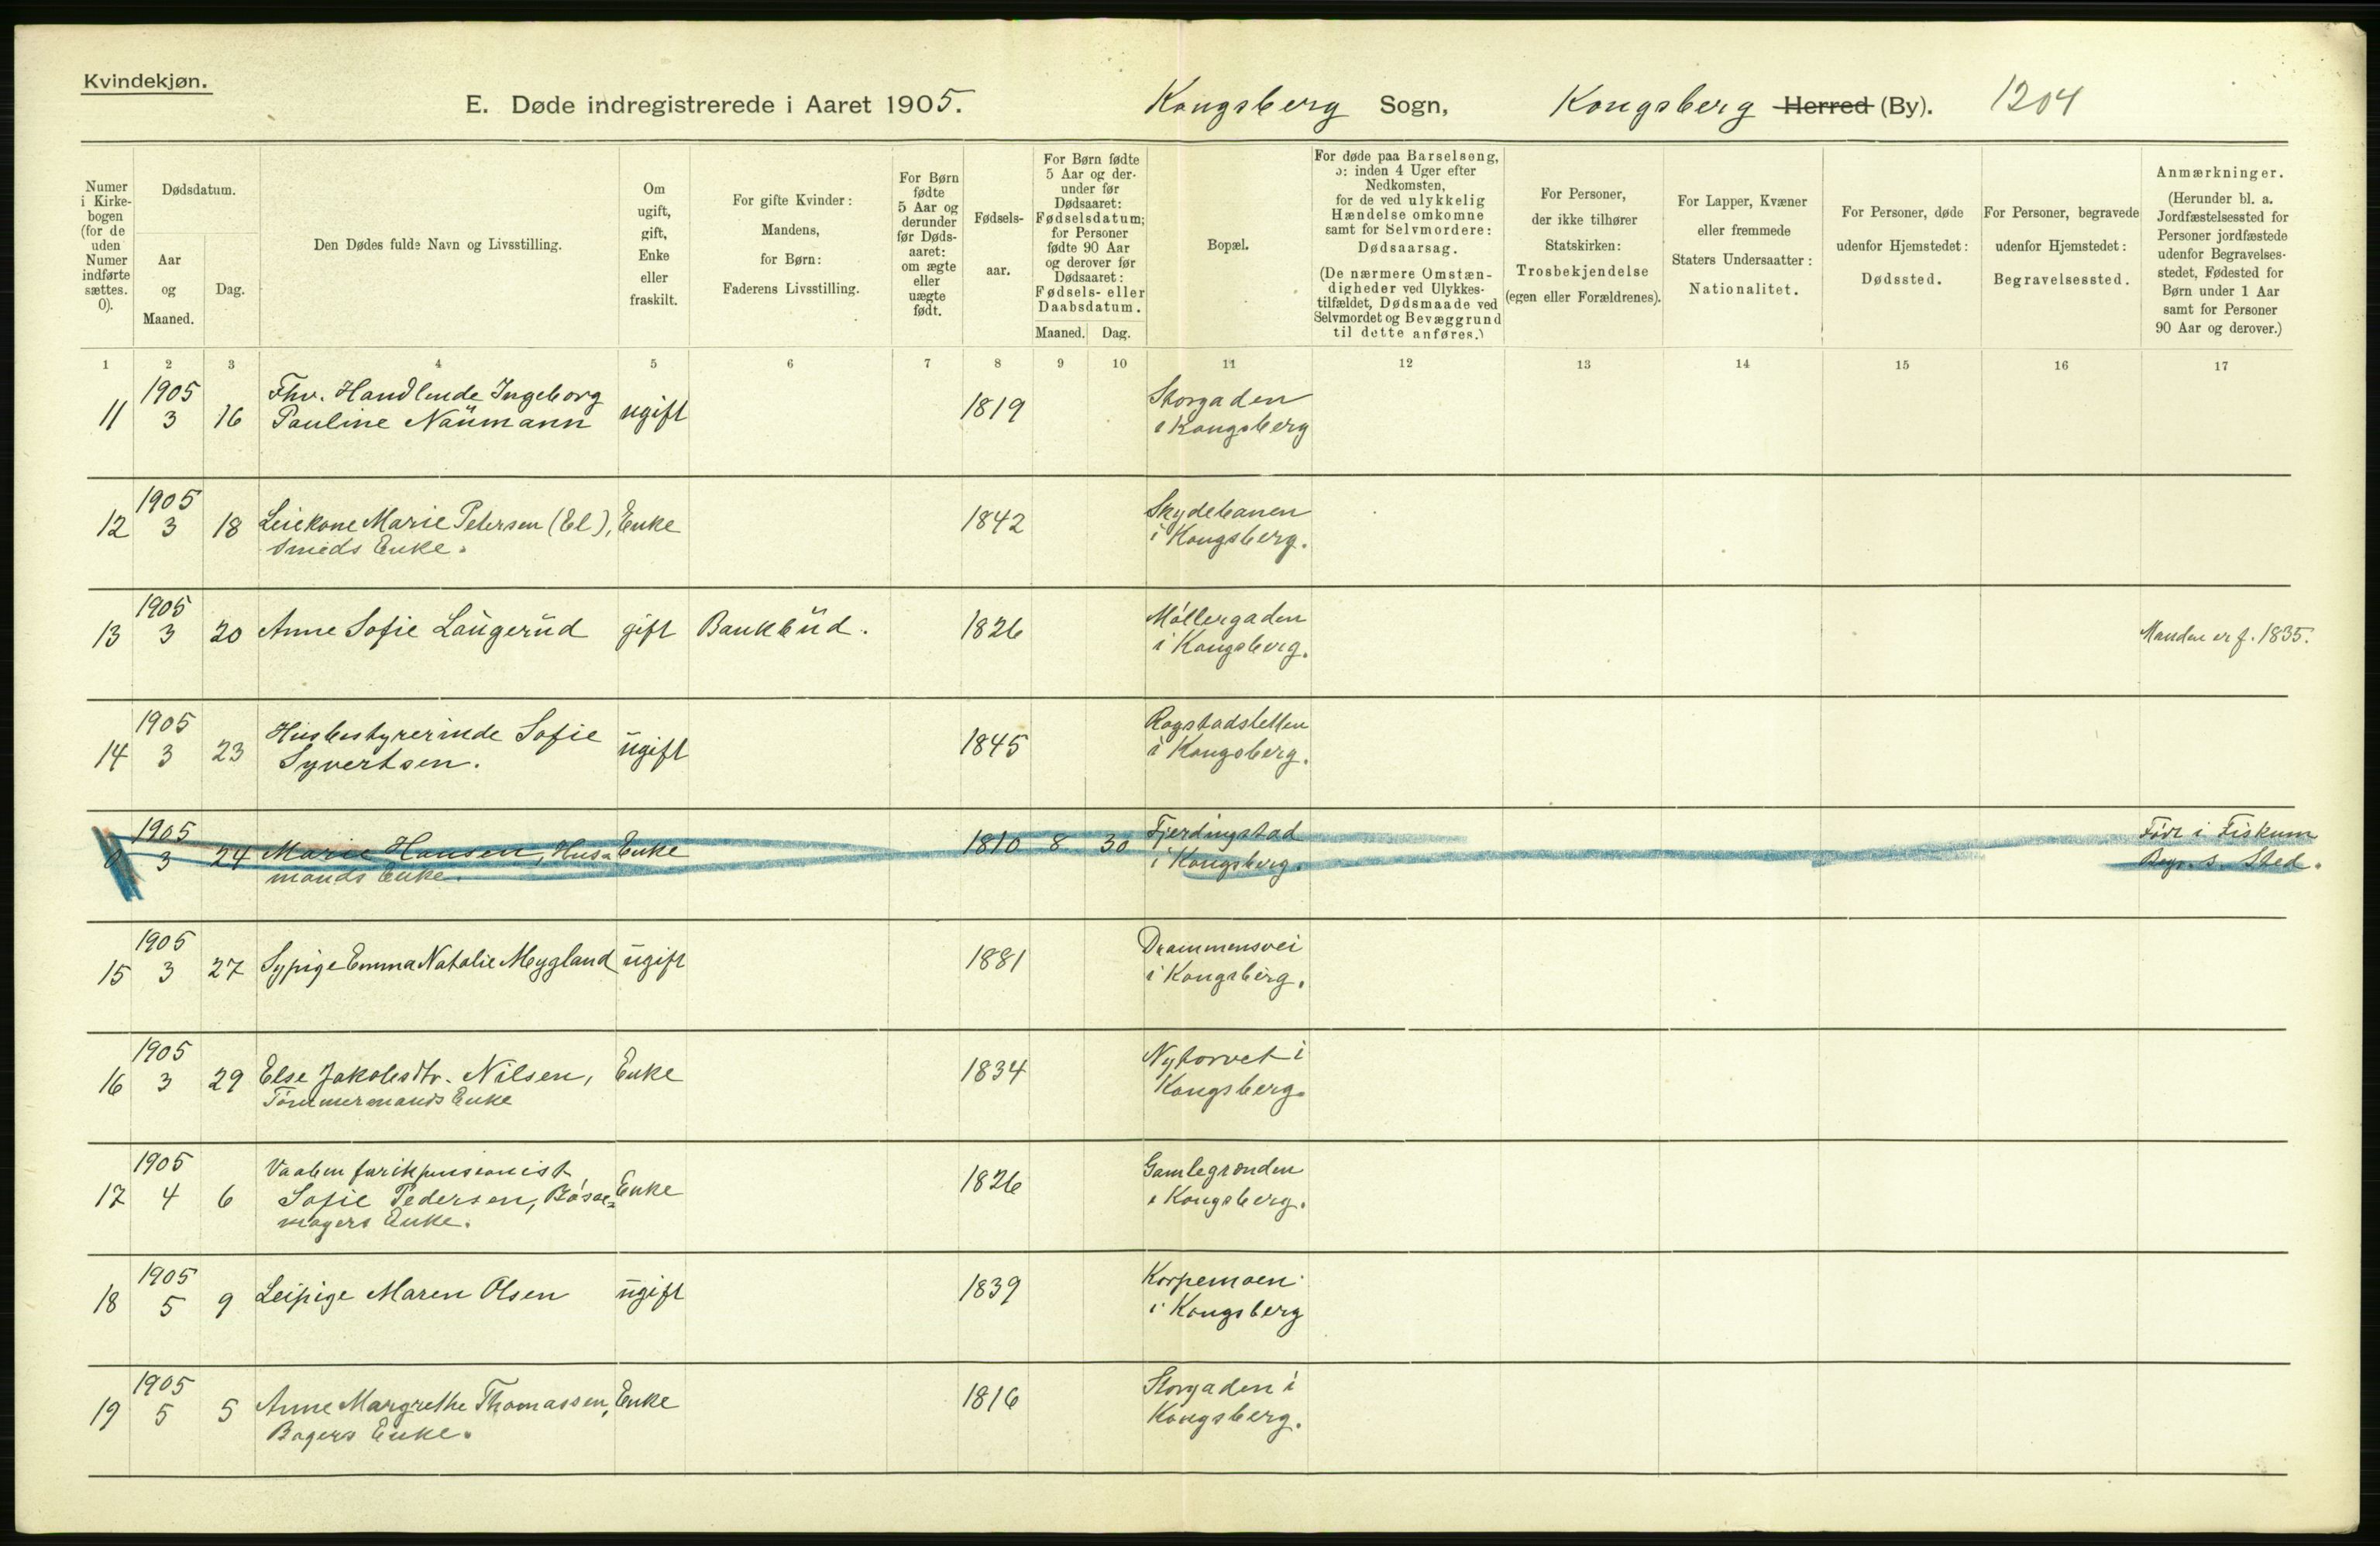 Kvindekjøn.
E. Døde indregistrerede i Aaret 1905. Kongsberg Sogn, Kongsberg Herred (By). 1204
Numer i Kirkebogen (for de uden Numer indførte sættes. 0).
Dødsdatum.
Aar og Maaned.
Dag.
Den Dødes fulde Navn og Livsstilling.
Om ugift, gift, Enke eller fraskilt.
For gifte Kvinder: Mandens, for Børn: Faderens Livsstilling.
For Børn fødte 5 Aar og derunder før Dødsaaret: om ægte eller uægte født.
Fødselsaar.
For Børn fødte 5 Aar og derunder før Dødsaaret: Fødselsdatum; for Personer fødte 90 Aar og derover før Dødsaaret: Fødsels- eller Daabsdatum.
Maaned. Dag.
Bopæl.
For døde paa Barselseng, ɔ: inden 4 Uger efter Nedkomsten, for de ved ulykkelig Hændelse omkomne samt for Selvmordere: Dødsaarsag.
(De nærmere Omstændigheder ved Ulykkestilfældet, Dødsmaade ved Selvmordet og Bevæggrund til dette anføres.)
For Personer, der ikke tilhører Statskirken: Trosbekjendelse (egen eller Forældrenes).
For Lapper, Kvæner eller fremmede Staters Undersaatter: Nationalitet.
For Personer, døde udenfor Hjemstedet: Dødssted.
For Personer, begravede udenfor Hjemstedet: Begravelsessted.
Anmærkninger.
(Herunder bl. a. Jordfæstelsessted for Personer jordfæstede udenfor Begravelsesstedet, Fødested for Børn under 1 Aar samt for Personer 90 Aar og derover.)
1 2 3 4 5 6 7 8 9 10 11 12 13 14 15 16 17
1905 Fhv. Handlende Ingeborg Storgaden
11 3 16 Pauline Naumann ugift 1819 i Kongsberg
1905 Skydebanen
12 3 18 Leiekone Marie Petersen (El), Enke 1842 i Kongsberg.
Smeds Enke.
1905 Møllergaden
13 3 20 Anne Sofie Laugerud gift Bankbud. 1826 i Kongsberg. Manden er f. 1835.
1905 Husbestyrerinde Sofie
14 3 23 Syvertsen. ugift 1845 i Kongsberg.
1905 Fjerdingstad Født i Fiskum
0 3 24 Marie Hansen, Hus- Enke 1810 8 30 i Kongsberg. Begr. s. Sted.
mands Enke.
1905 Drammensvei
15 3 27 Sypige Emma Natalie Mygland ugift 1881 i Kongsberg.
1905 Nytorvet i
16 3 29 Else Jakobsdtr. Nilsen, Enke 1834 Kongsberg.
Tømmermands Enke
1905 Vaabenfabrikpensionist Gamlegrønden
17 4 6 Sofie Pedersen, Bøsse- Enke 1826 i Kongsberg.
magers Enke.
1905 Korpemoen
18 5 9 Leipige Maren Olsen ugift 1839 i Kongsberg
1905 Storgaden i
19 5 5 Anne Margrethe Thomassen, Enke 1816 Kongsberg.
Bagers Enke.